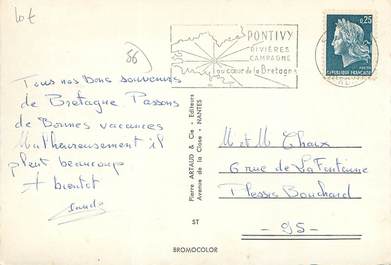 lot
56
PONTIVY
RIVIÈRES
CAMPAGNE
au cœur de la Bretagne
0,25
REPUBLIQUE FRANÇAISE
Tous nos bons souvenirs
de Bretagne Passons
de Bonnes vacances
Malheureusement il
pleut beaucoup
A bientot
Pierre ARTAUD & Cie - Editeurs
Avenue de la Close - NANTES
ST
M et M Chaix
6 rue de La Fontaine
Plessis Bouchard
- 95 -
BROMOCOLOR